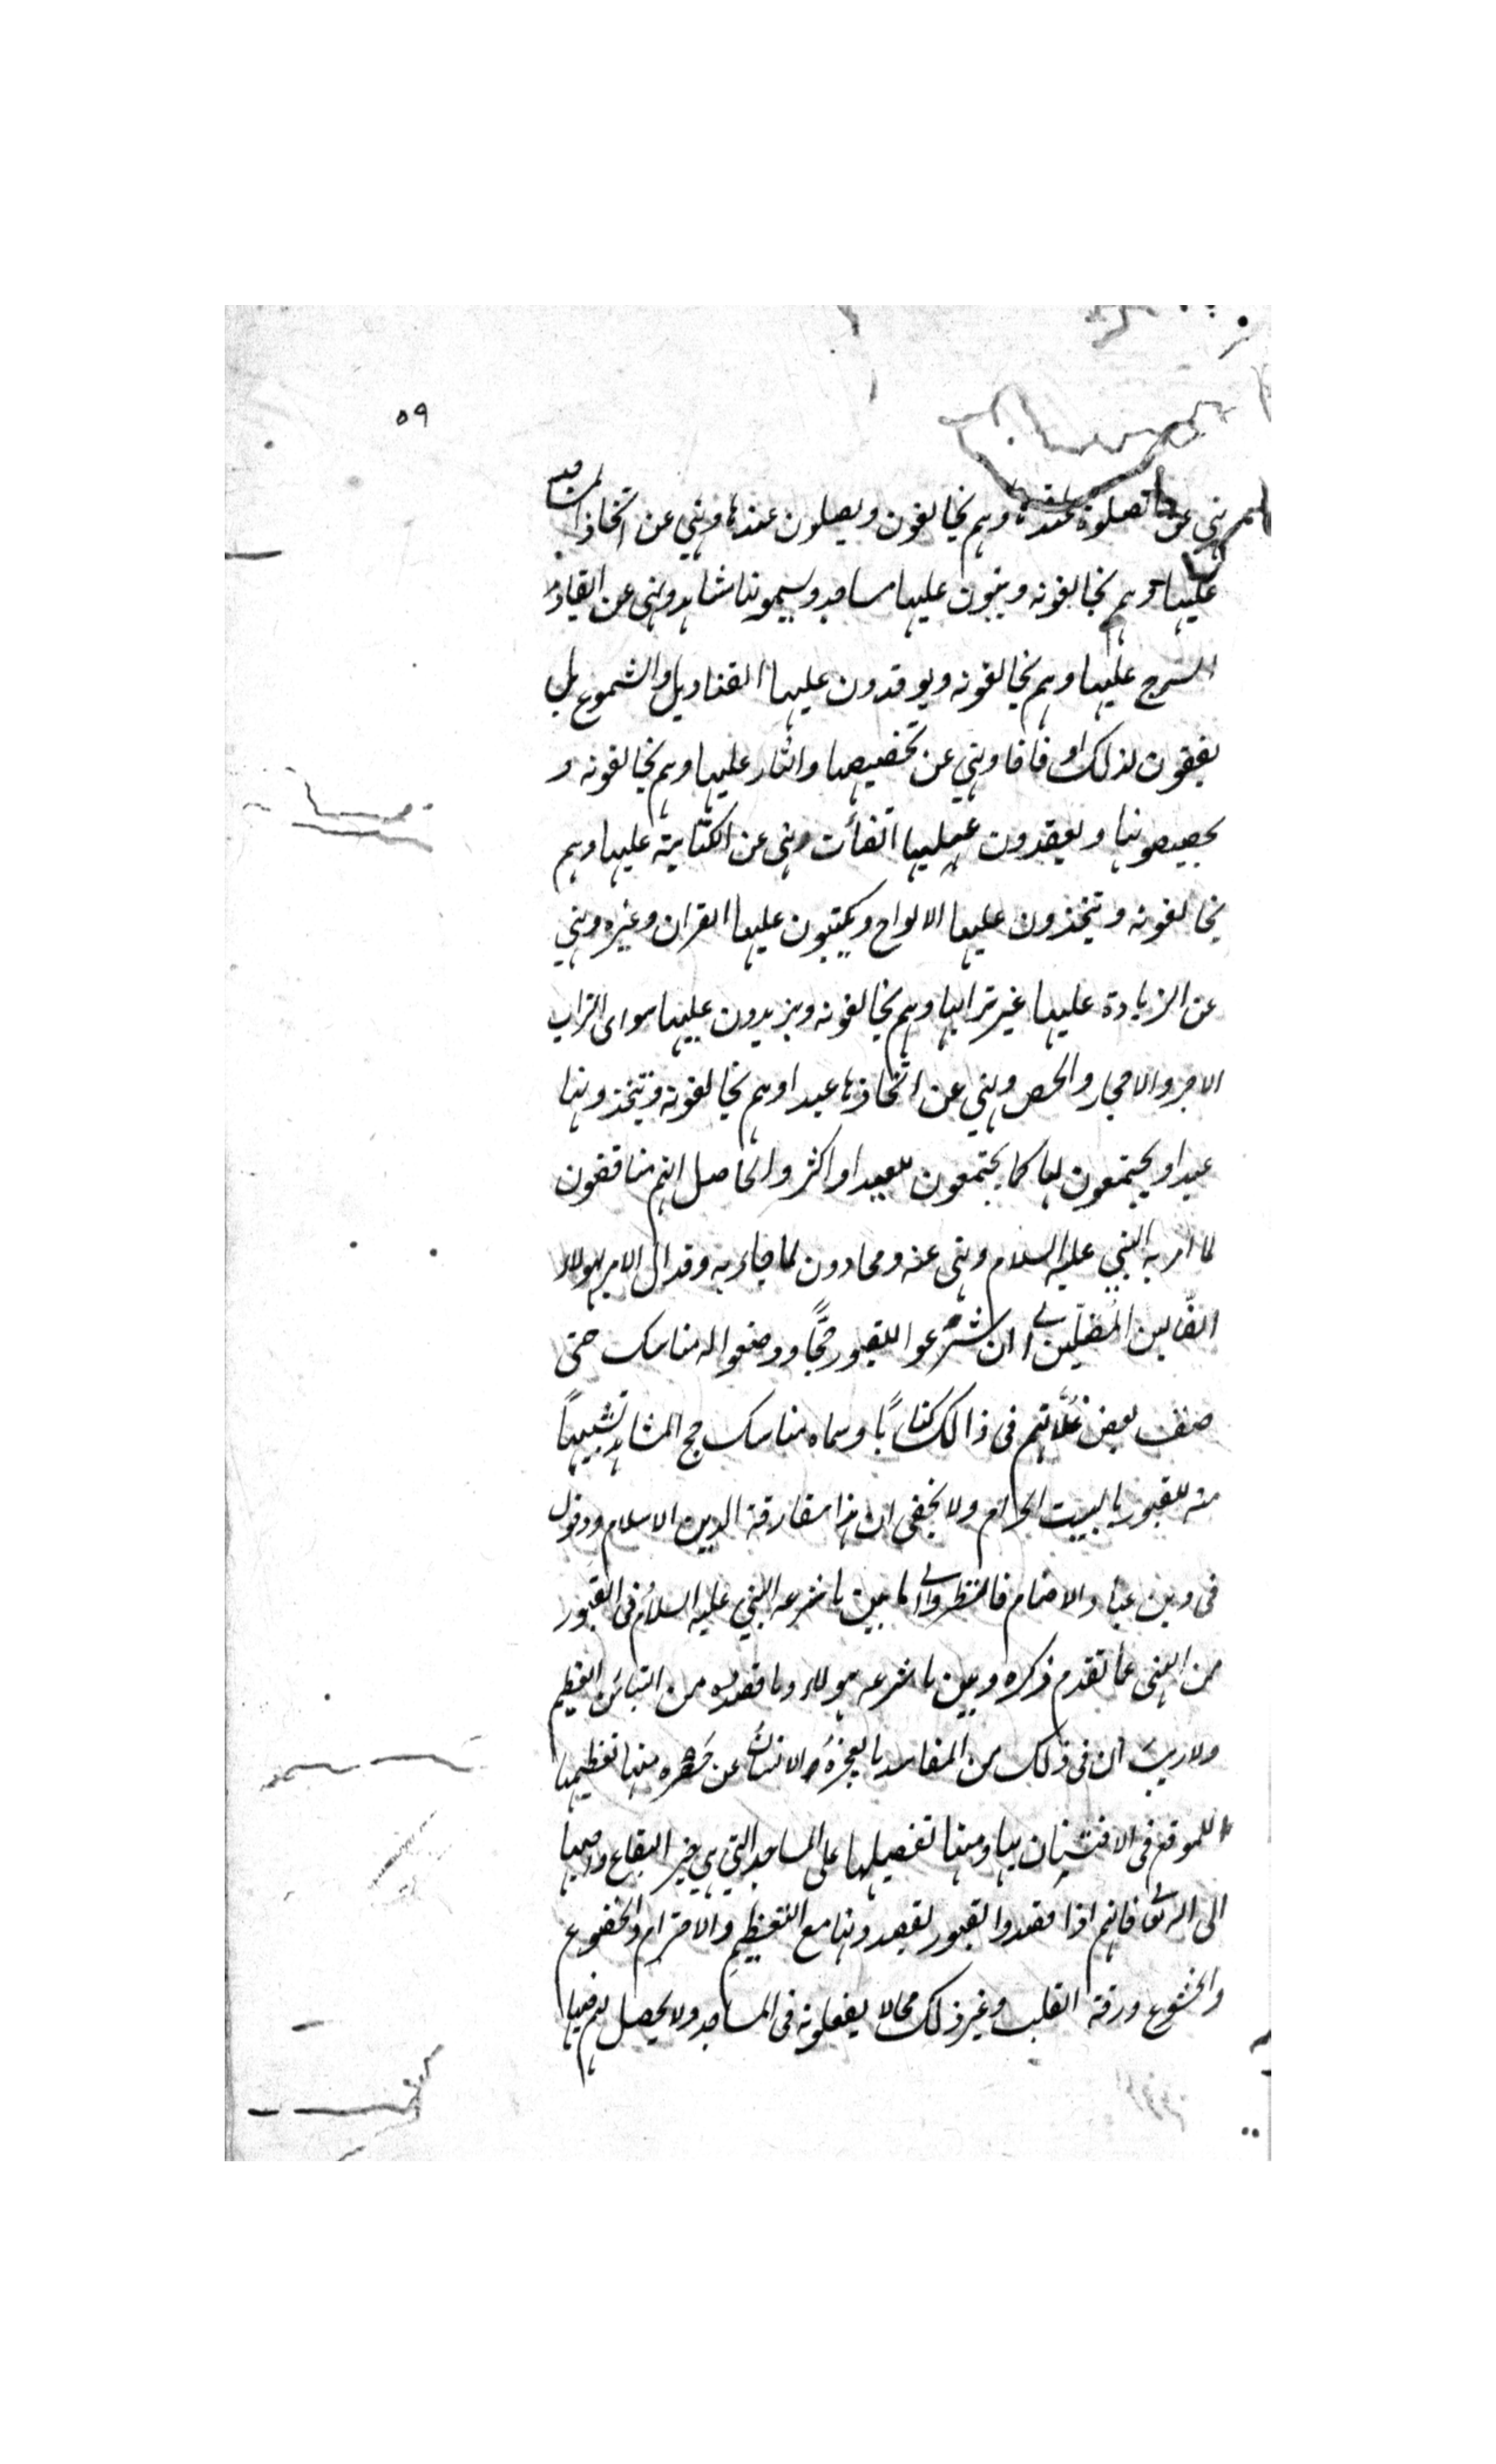 ٥٩
نهى عن الصلوة عندها وهم يخالفون ويصلون عندها ونهي عن اتخاذ المساجد
عليها وهم يخالفونه ويبنون عليها مساجد ويسمونها مشاهد ونهى عن ايقاد
السرج عليها وهم يخالفونه ويوقدون عليها القناديل والشموع بل
يقفون لذلك اوقافا ونهي عن تجصيصها والبناء عليها وهم يخالفونه و
يجصصونها ويعقدون عليها القبات ونهى عن الكتابة عليها وهم
يخالفونه ويتخذون عليها الالواح ويكتبون عليها القران وغيره ونهي
عن الزيادة عليها غير ترابها وهم يخالفونه ويزيدون عليها سواى التراب
الاجر والاحجار والجص ونهي عن اتخاذها عيدا وهم يخالفونه ويتخذونها
عيدا ويجتمعون لها كما يجتمعون للعيد او اكثر والحاصل انهم مناقضون
لما امر به النبي عليه السلام ونهى عنه ومحادون لما جاء به وقد ال الامر بهولاء
الضالين المضلين الى ان شرعوا للقبور حجًّا ووضعوا له مناسك حتى
صنف بعض غلاتهم فى ذالك كتابًا وسماه مناسك حج المشاهد تشبيهًا
منه للقبور بالبيت الحرام ولا يخفى ان هذا مفارقة الدين الاسلام ودخول
فى دين عباد الاصنام فانظروا الى ما بين ما شرعه النبي عليه السلام فى القبور
من النهى عما تقدم ذكره وبين ما شرعه هولاء وما قصدوه من التباين العظيم
ولا ريب ان فى ذلك من المفاسد ما يعجز الانسان عن حصره منها تعظيمها
الموقع فى الافتتان بها ومنها تفضيلها على المساجد التي هي خير البقاع واحبها
الى الله تعالى فانهم اذا قصدوا القبور يقصدونها مع التعظيم والاحترام والخضوع
والخشوع ورقة القلب وغير ذلك مما لا يفعلونه فى المساجد ولا يحصل لهم فيها